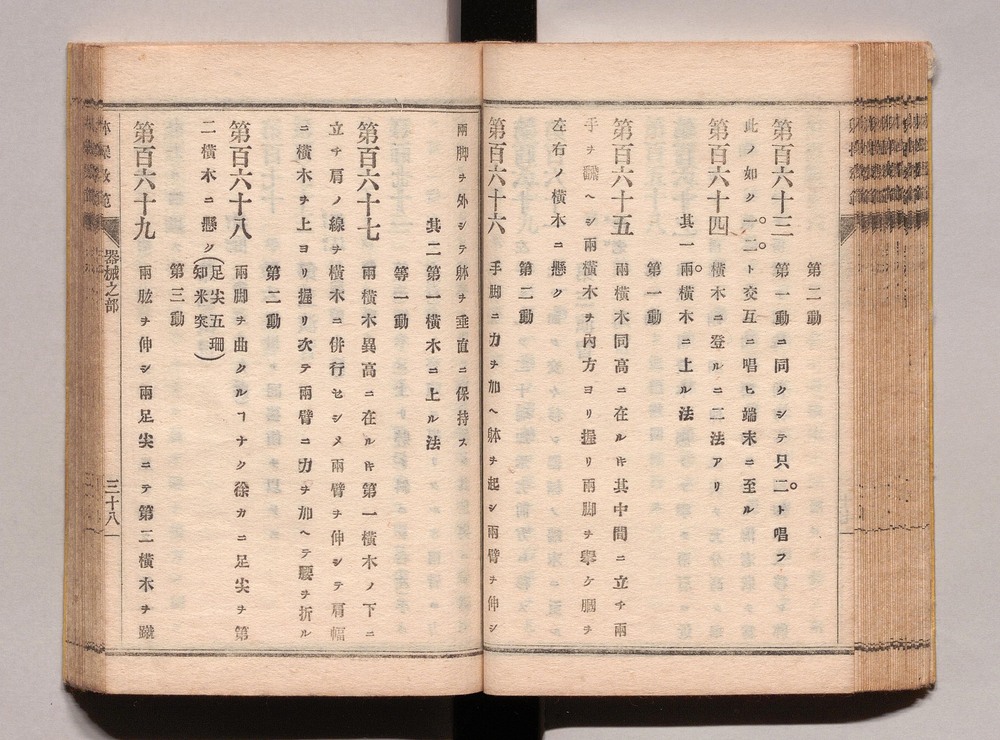 第二動
第百六十三 第一動ニ同クシテ只二ト唱フ
此ノ如ク一二ト交互ニ唱ヒ端末ニ至ル
第百六十四 横木ニ登ルニ二法アリ
其一 兩横木ニ上ル法
第一動
第百六十五 兩横木同高ニ在ルㇳキ其中間ニ立チ兩
手ヲ飜ヘシ兩横木ヲ内方ヨリ握リ兩脚ヲ擧ケ膕ヲ
左右ノ横木ニ懸ク
第二動
第百六十六 手脚ニ力ヲ加ヘ躰ヲ起シ兩臂ヲ伸シ
兩脚ヲ外シテ躰ヲ垂直ニ保持ス
其二 第一横木ニ上ル法
等一動
第百六十七 兩横木異高ニ在ルㇳキ第一横木ノ下ニ
立チ肩ノ線ヲ横木ニ併行セシメ兩臂ヲ伸シテ肩幅
ニ横木ヲ上ヨリ握リ次テ兩臂ニ力ヲ加ヘテ腰ヲ折ル
第二動
第百六十八 兩脚ヲ曲クルヿナク徐カニ足尖ヲ第
二横木ニ懸ク(足尖五珊知米突)
第三動
第百六十九 兩肱ヲ伸シ兩足尖ニテ第二横木ヲ蹴
躰操敎範 器械之部 三十八